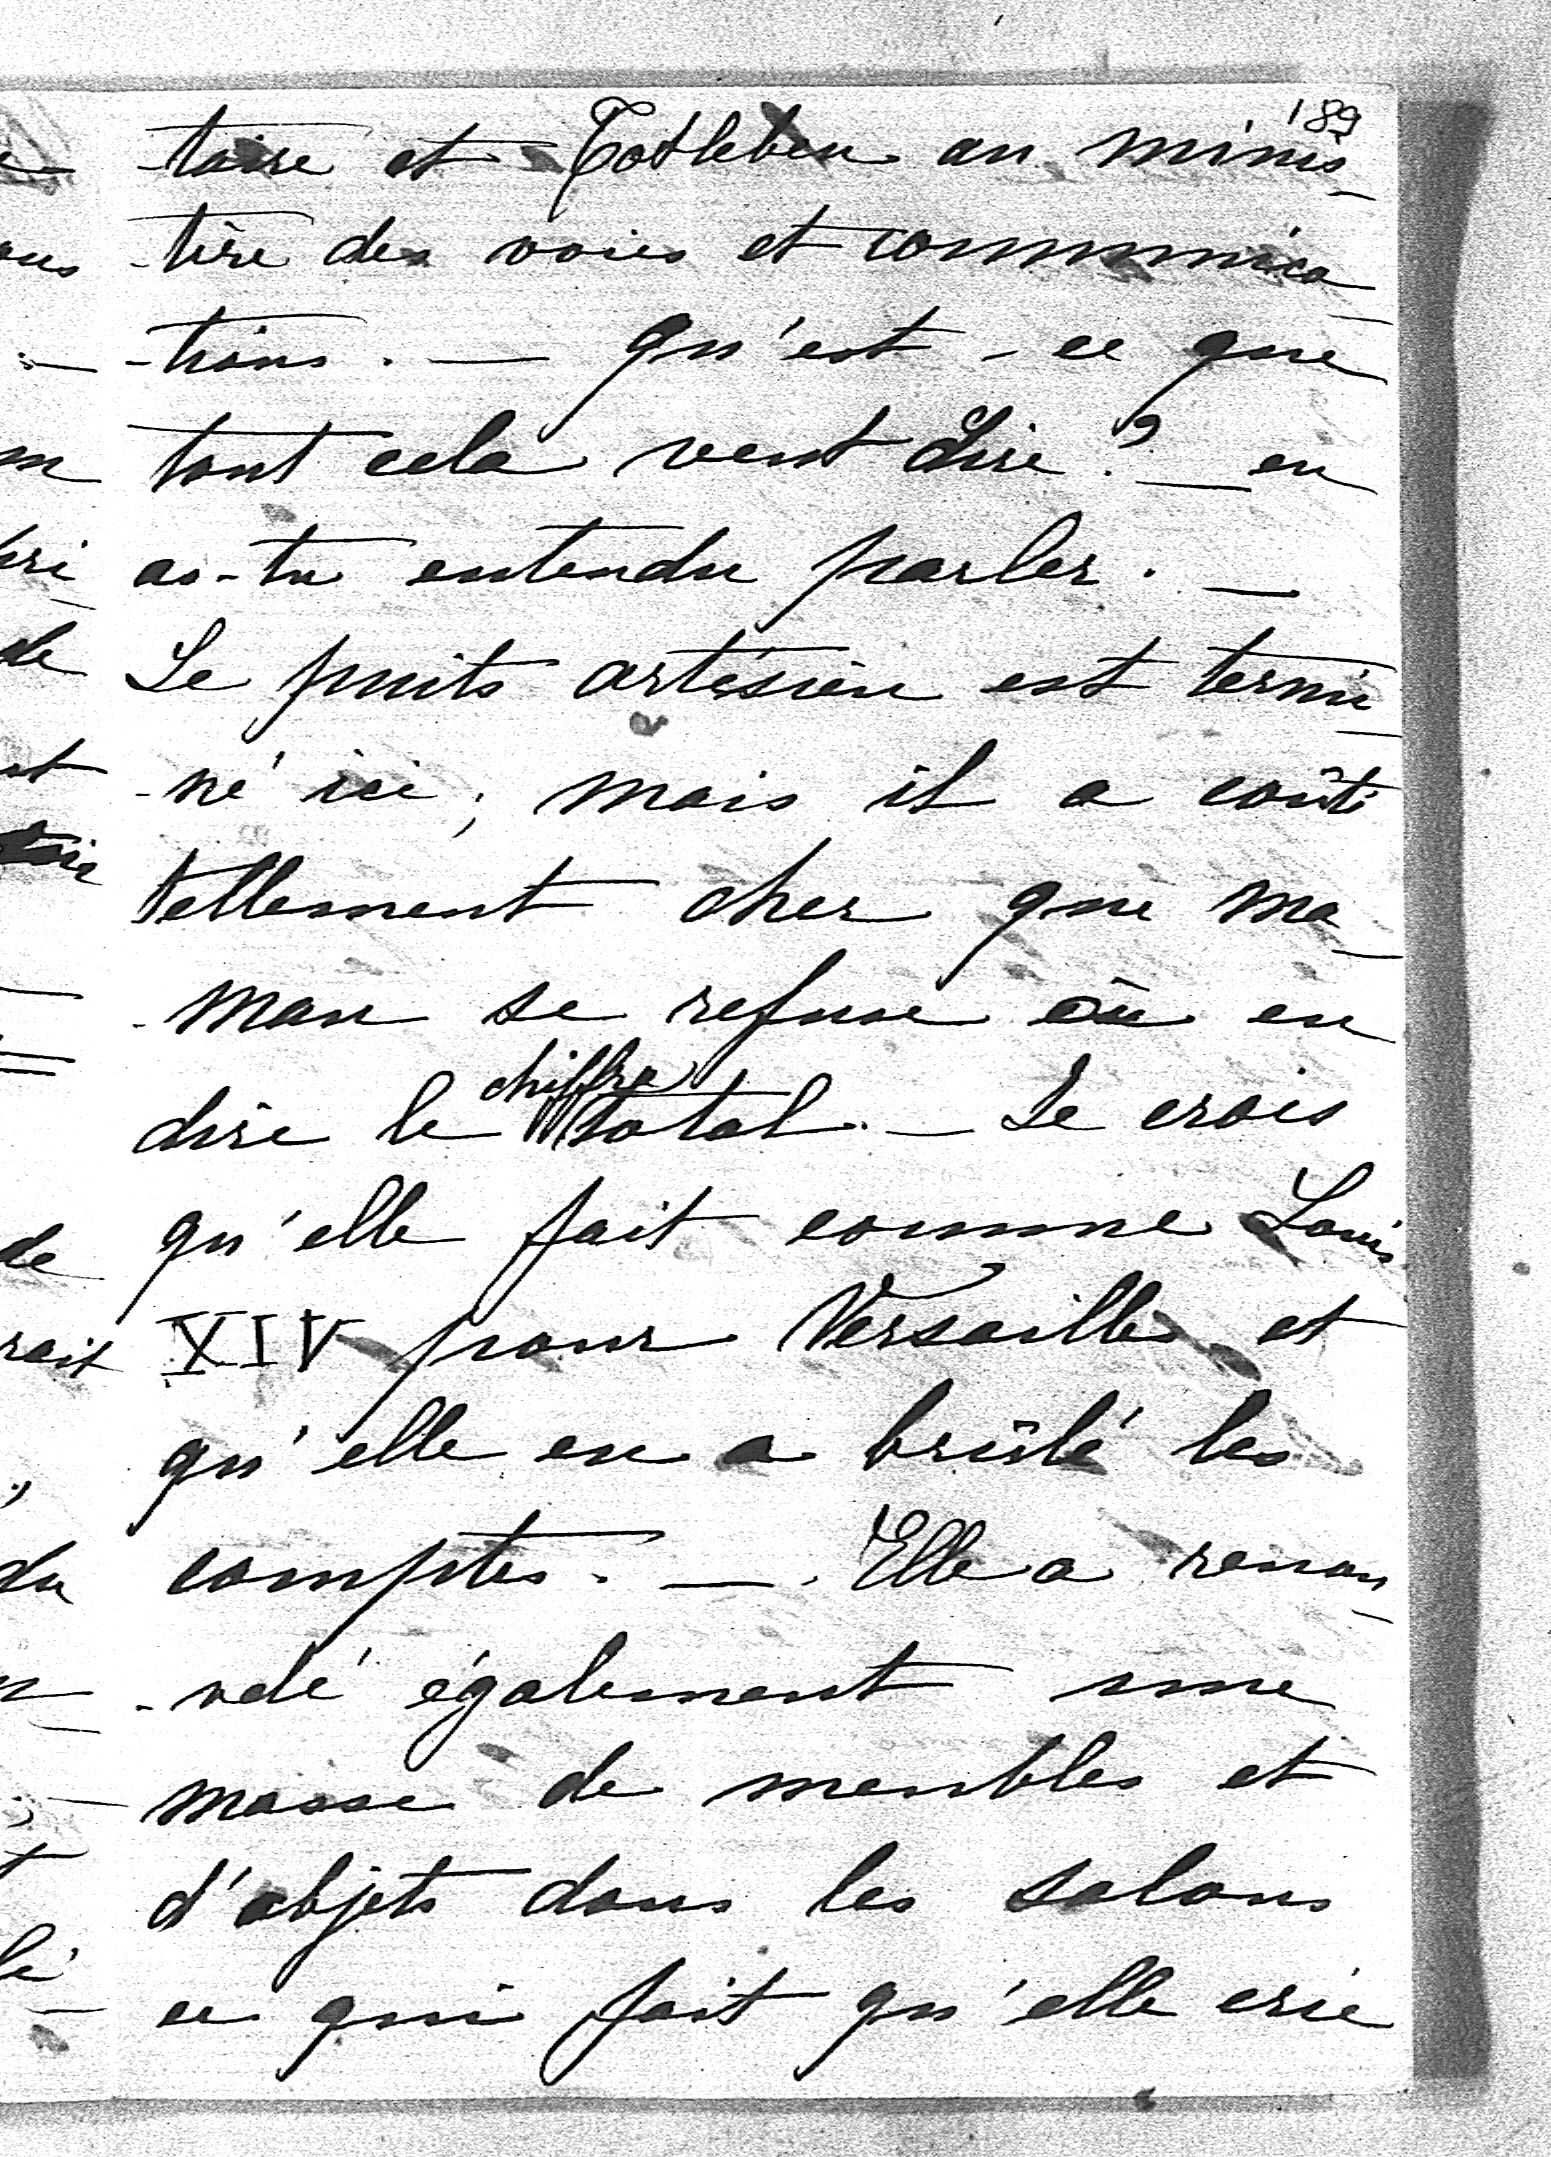 189
-taire et Todleben au minis-
-tère des voies et communica-
-tions. — Qu'est-ce que
tout cela veut dire? — en
as-tu entendu parler. —
Le puits artésien est termi-
-né ici; mais il a coûté
tellement cher que ma-
-man se refuse où en
dire le chiffre total. — Je crois
qu'elle fait comme Louis
XIV pour Versailles et
qu'elle en a brûlé les
comptes. — Elle a renou-
-velé également une
masse de meubles et
d'objets dans les salons
ce qui fait qu'elle crie